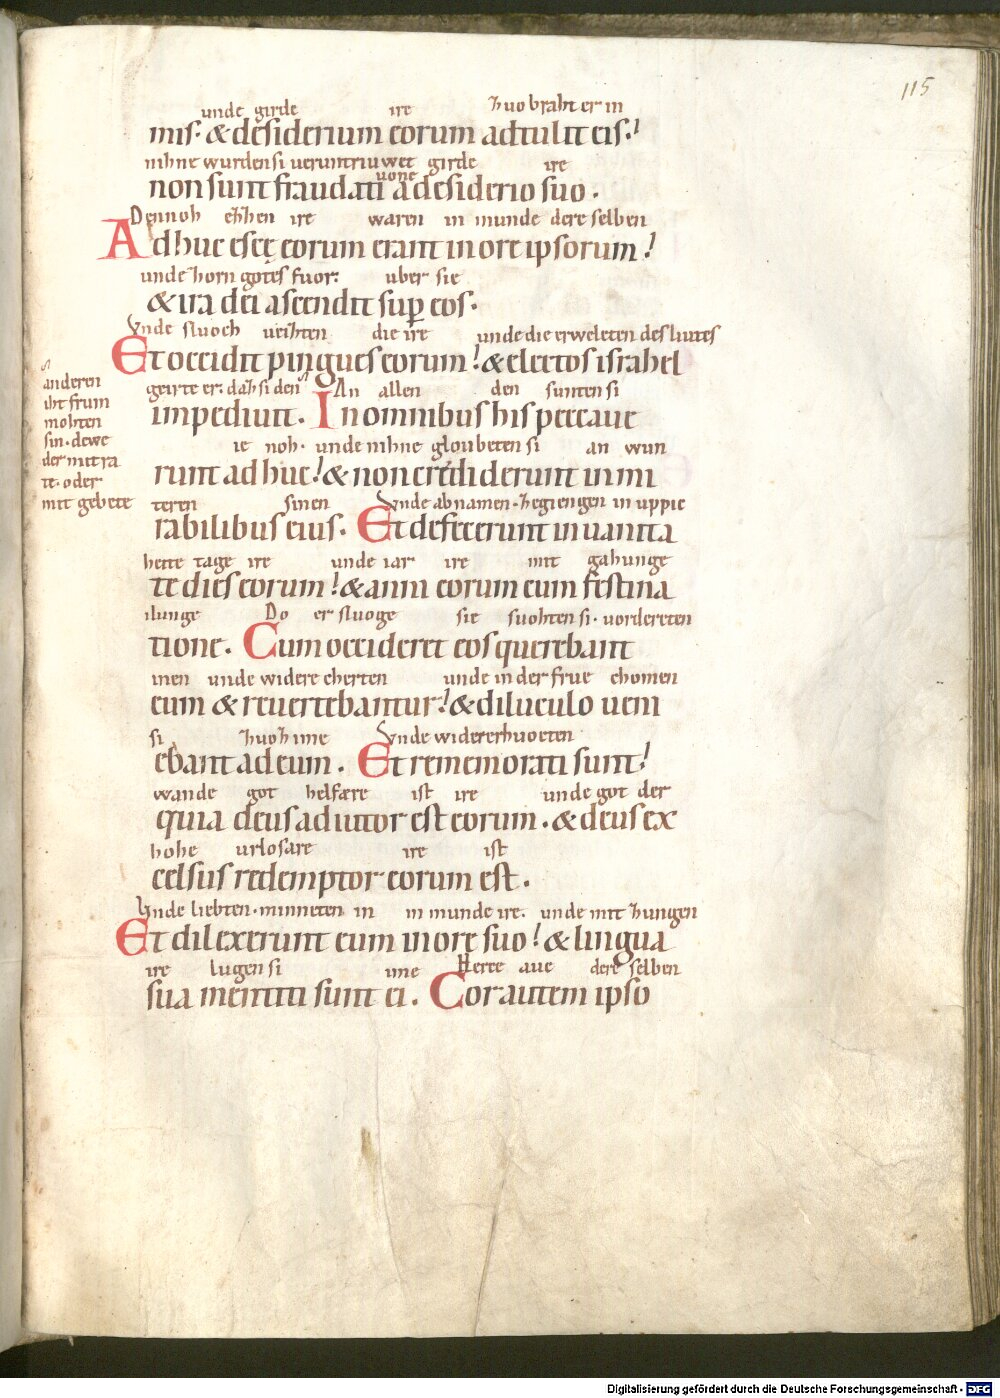 115
unde girde ire huo braht er in
mis· & desiderium eorum adtulit eis·
nihne wurden si veruntriuwet girde ire
uone
non sunt fraudati a desiderio suo·
Dennoh ezzen ire waren in munde dere selben
Adhuc escę eorum erant in ore ipsorum
unde zorn gotes fuor uber sie
& ira dei ascendit sup eos·
Vnde sluoch veihten die ire unde die erweleten des liutes
Et occidit pingues eorum & electos israhel
geirte er· dah si den An allen den sunten si
impediuit· In omnibus his peccaue
ie noh· unde nihne gloubeten si an wun
runt adhuc & non crediderunt in mi
teren sinen Vnde abnamen· zegiengen in uppic
rabilibus eius· Et defecerunt in uanita
heite tage ire unde iar ire mit gahunge
te dies eorum & anni eorum cum festina
ilunge Do er sluoge sie suohten si· vordereten
tione· Cum occideret eos querebant
inen unde widere cherten unde in der frue chomen
eum & reuertebantur & diluculo ueni
si zuoz ime Vnde widererhuoeten
ebant ad eum· Et rememorati sunt
wande got helfære ist ire unde got der
quia deus adiutor est eorum· & deus ex
hohe urlosare ire ist
celsus redemptor eorum est·
Vnde liebten· minneten in in munde ire· unde mit zungen
Et dilexerunt eum in ore suo & lingua
ire lugen si ime Herce aue dere selben
sua mentiti sunt ei· Cor autem ipso
anderen
iht frum
mohten
sin· dewe
der nitra
te· oder
mit gebete
Digitalisierung gefördert durch die Deutsche Forschungsgemeinschaft - DFG